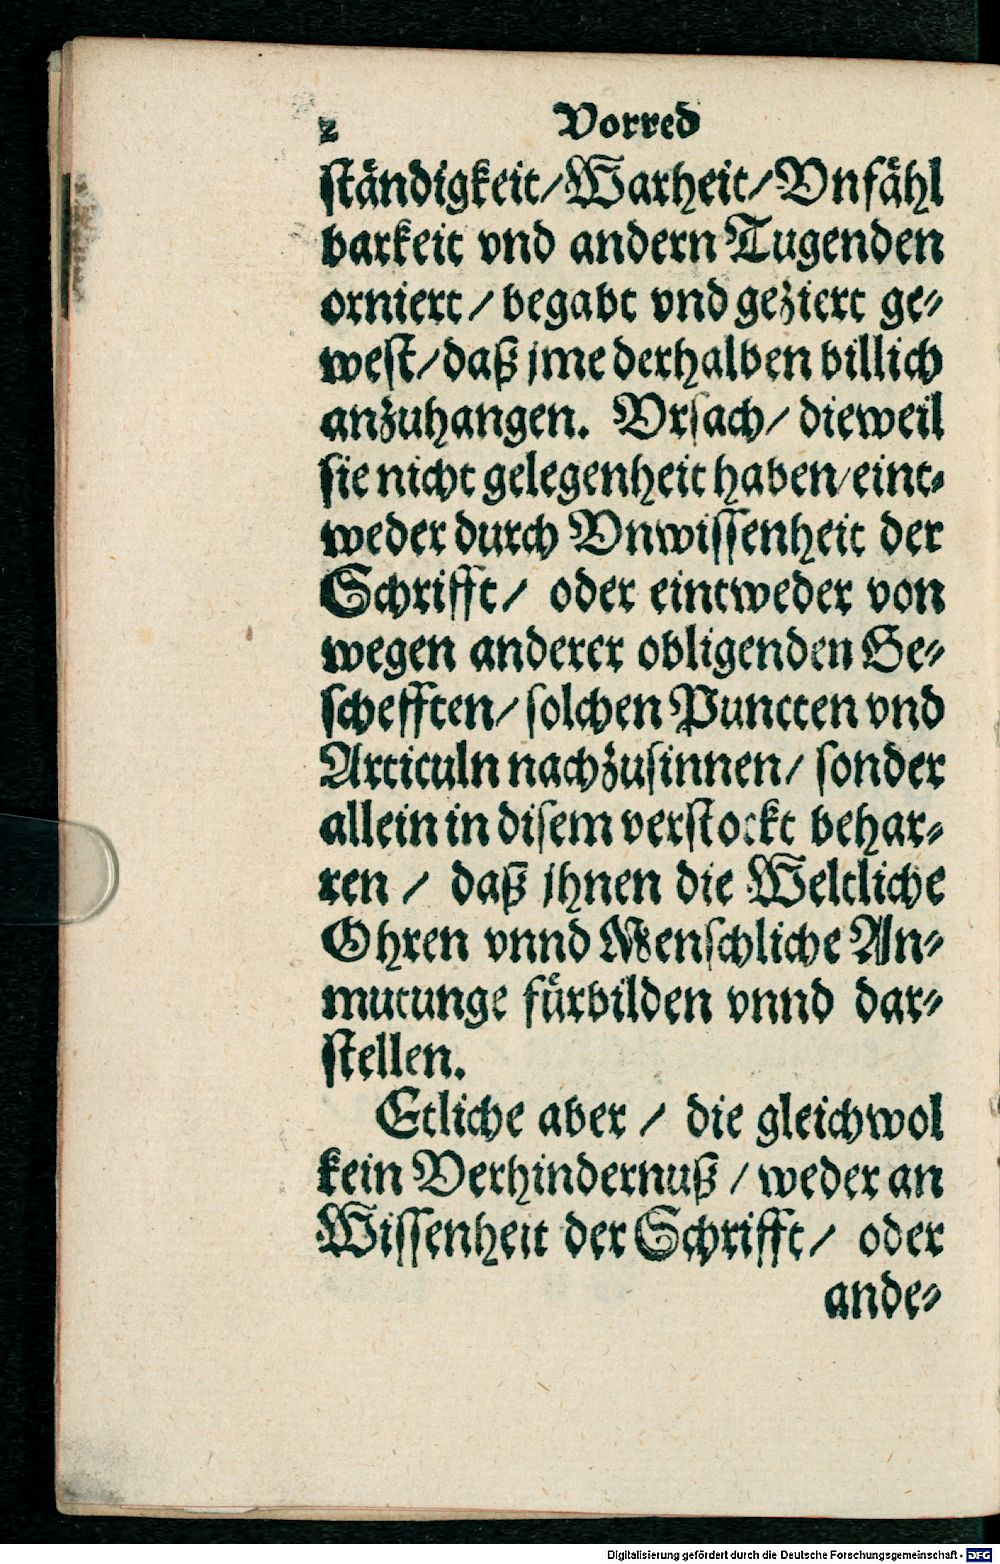 2 Vorred
ständigkeit/Warheit/Vnfähl
barkeit vnd andern Tugenden
orniert/begabt vnd geziert ge-
west/daß jme derhalben billich
anzuhangen. Vrsach/dieweil
sie nicht gelegenheit haben/eint-
weder durch Vnwissenheit der
Schrifft/ oder eintweder von
wegen anderer obligenden Ge-
schefften/solchen Puncten vnd
Articuln nachzusinnen/ sonder
allein in disem verstockt behar-
ren / daß jhnen die Weltliche
Ohren vnnd Menschliche An-
mutunge fürbilden vnnd dar-
stellen.
Etliche aber / die gleichwol
kein Verhindernuß /weder an
Wissenheit der Schrifft/ oder
ande-
Digitalisierung gefördert durch die Deutsche Forschungsgemeinschaft - DFG